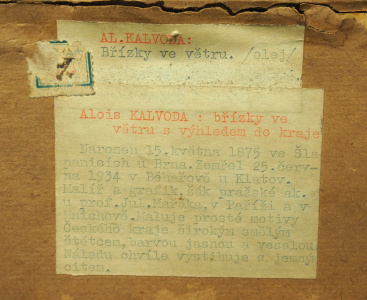 AL.KALVODA:
Břízky ve větru. /olej/
Alois KALVODA : břízky
ve větru s výhledem do kraje
Narozen 15.května 1875 ve Šla
panicích u Brna.Zemřel 25.červ-
na 1934 v Běhařově u Klatov.
Malíř a grafik,žák pražské ak.
u prof.Jul.Mařáka,v Paříži a v
Mnichově.Maluje prosté motivy
Českého kraje širokým smělým
štětcem,barvou jasnou a veselou.
Náladu chvíle vystihuje s jemným
citem.